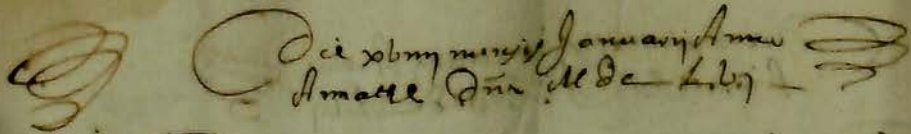 Die xviiij mensis Januarij Anno
A natte Dnj M dc Lvj